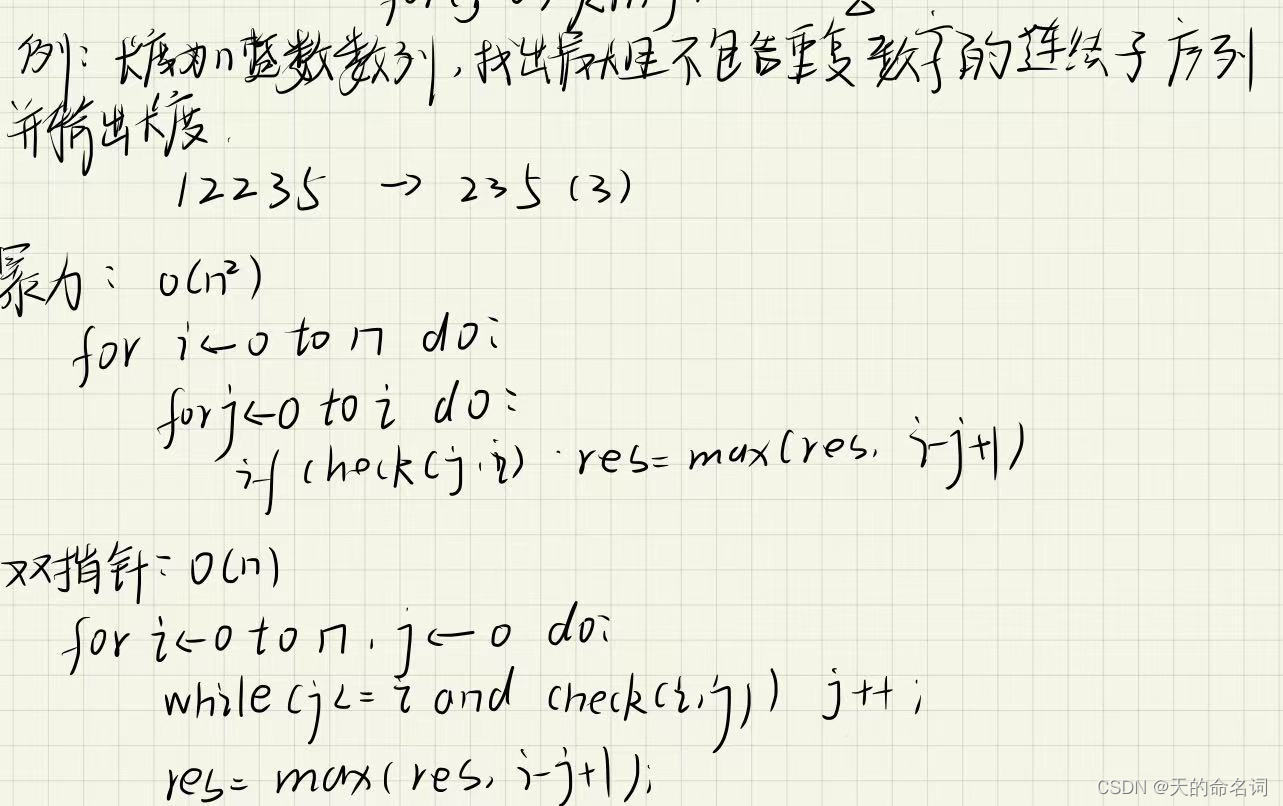 例：长度为n整数数列，找出最长里不包含重复数字的连续子序列
并输出长度.
12235 → 235 (3)
暴力：O(n²)
for i←0 to n do:
for j←0 to i do:
if check(j,i) res=max(res, i-j+1)
双指针：O(n)
for i←0 to n, j←0 do:
while (j<=i and check(i,j)) j++;
res=max(res, i-j+1);
CSDN @天的命名词